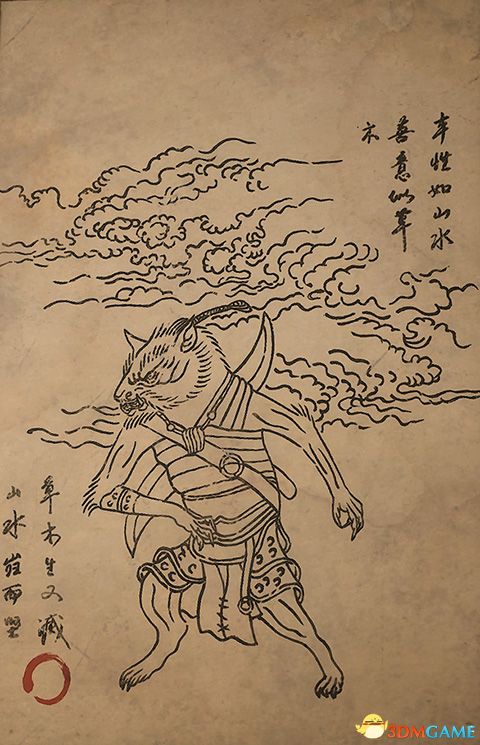 本性如山水
善意似草
木
草木生又滅
山水而堅
3DMGAME